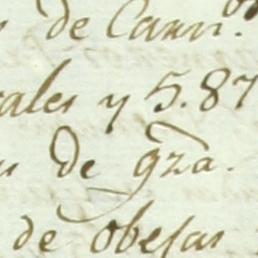 de Carn.os
rales y 5.87
de gza.
de obejas